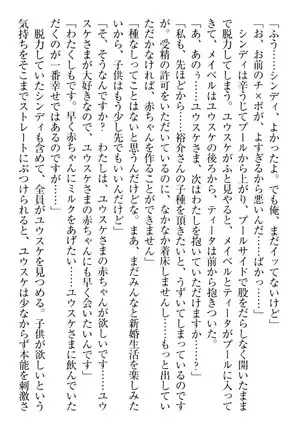 「ふう……シンディ、まだイッてないけど」
「お、お前のチ×ポが、よすぎるから悪いんだ……ばかっ……」
よぉ……」
シンディは辛うじてプールから上がり、プールサイドで股をだらしなく開いたまま
で脱力してしまう。ユウスケがふと見やると、メイベルとティータがプールに入って
きて、メイベルはユウスケの後ろから、ティータは前から抱きついた。
「あ、あのぅ……ユウスケさま、次はわたしを抱いていただけますか？」
「私も、先ほどから……裕介さんの子種を頂きたいと、うずいてしまっているです
が。受精の許可をいただいているのに、なかなか着床しませんし……もっと出してい
ただかなければ、赤ちゃんを作ることができません」
「種なしってことはないと思うんだけどな。まあ、まだみんなと新婚生活を楽しみた
いから、子供はもう少し先でもいいんだけど」
「そうなんですか？　わたしは、ユウスケさまの赤ちゃんが欲しいです……ユウ
スケさまが大好きなので、ユウスケさまの赤ちゃんにも早く会いたいんです」
「わたくしもです。早く赤ちゃんにミルクをあげたい……ユウスケさまに飲んでいた
だくのが一番幸せではあるのですが……」
脱力していたシンディも含めて、全員がユウスケを見つめる。子供が欲しいという
気持ちをそこまでストレートにぶつけられると、ユウスケは少なからず本能を刺激さ